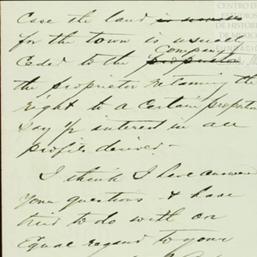 CENTRO D
DE HISTOR
Case the land is usua
for the town is usual
Company
Ceded to the proprietor
the proprietor retaining the
right to a Certain proportion
say 1/2 interest in all
profits derived -
I think I have answered
Your questions & have
tried to do with an
Equal regard to your